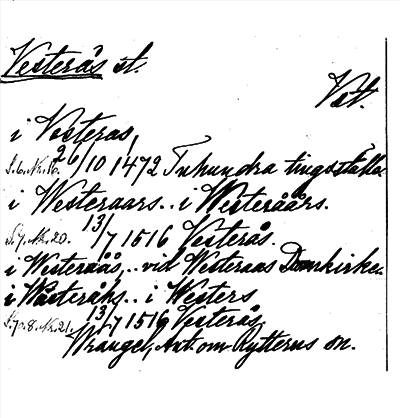 Vesterås st.
Vst.
i Vesteras,
S. 6. Nr. 16. 26/10 1472 Tuhundra tingsställe
i Westeraars.. i Westeråårs.
S. 7. Nr. 20. 13/7 1516 Vesterås.
i Westeråås,.. vid Westeraas Domkirke.
i Wästeråhs.. i Westers
S. 7o. 8. Nr. 21. 13/7 1516 Vesterås,
Wrangel, Ant. om Rytterns sn.